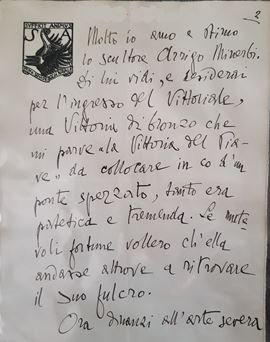 2
SVFFICIT ANIMVS
Molto io amo e stimo
lo scultore Arrigo Minerbi.
Di lui vidi, e desiderai
per l'ingresso del Vittoriale,
una Vittoria di bronzo che
mi parve « la Vittoria del Pia-
ve » da collocare in co d'un
ponte spezzato, tanto era
patetica e tremenda. Le mute-
voli fortune vollero ch'ella
andasse altrove a ritrovare
il suo fulcro.
Ora dinanzi all'arte severa